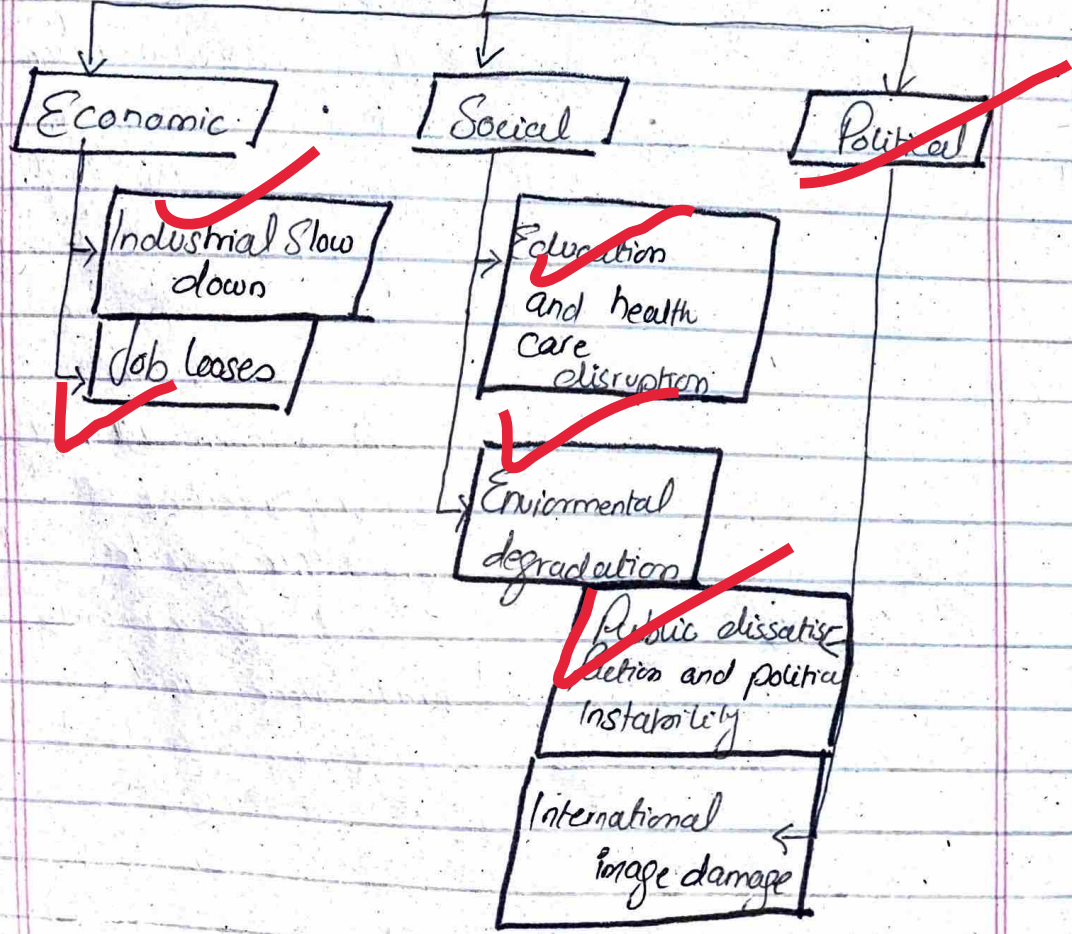 Economic
Social
Political
Industrial Slow
down
Job looses
Education
and health
care
disruption
Enviormental
degradation
Public dissatisf
action and politica
Instability
International
image damage